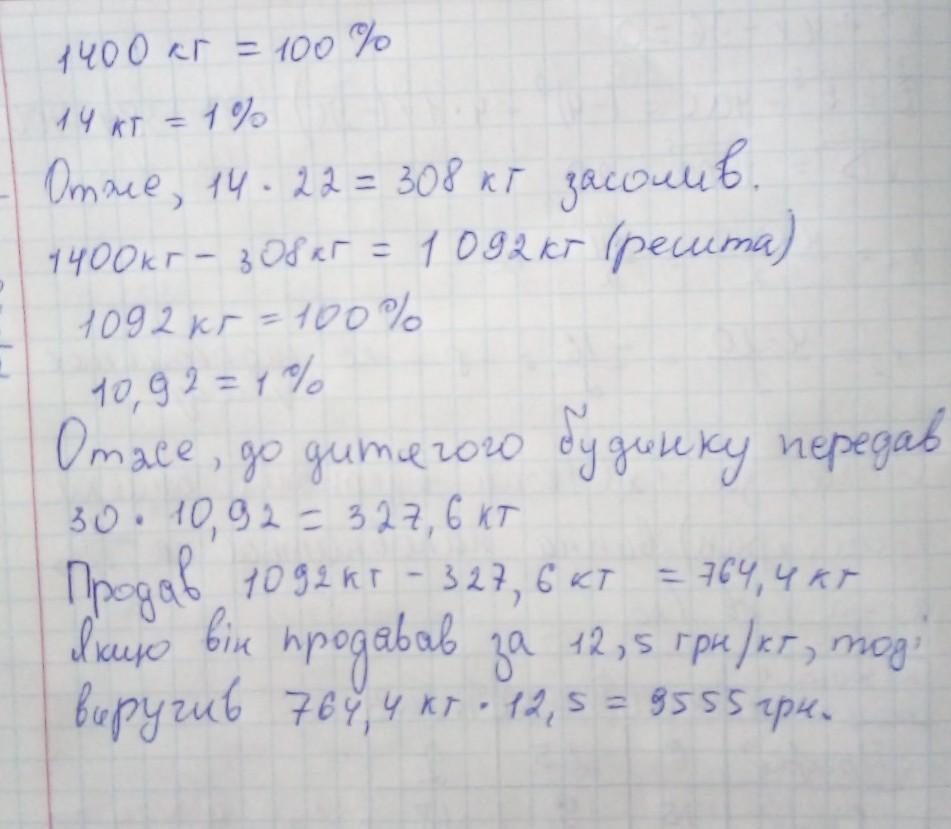 1400 кг = 100 %
14 кг = 1 %
Отже, 14 · 22 = 308 кг засолив.
1400кг - 308кг = 1 092кг (решта)
1092 кг = 100 %
10,92 = 1 %
Отже, до дитячого будинку передав
30 · 10,92 = 327,6 кг
Продав 1092кг - 327,6 кг = 764,4 кг
Якщо він продавав за 12,5 грн/кг, тоді
виручив 764,4 кг · 12,5 = 9555 грн.